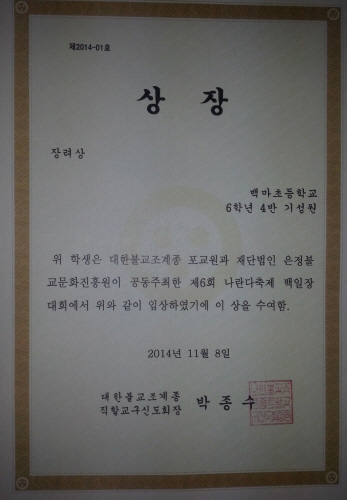 제2014-01호
상 장
장려상
백마초등학교
6학년 4반 기성원
위 학생은 대한불교조계종 포교원과 재단법인 은정불
교문화진흥원이 공동주최한 제6회 나란다축제 백일장
대회에서 위와 같이 입상하였기에 이 상을 수여함.
2014년 11월 8일
대한불교조계종
직할교구신도회장 박종수